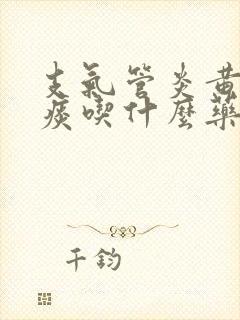 支氣管炎黃
痰喫什麼藥
千鈞